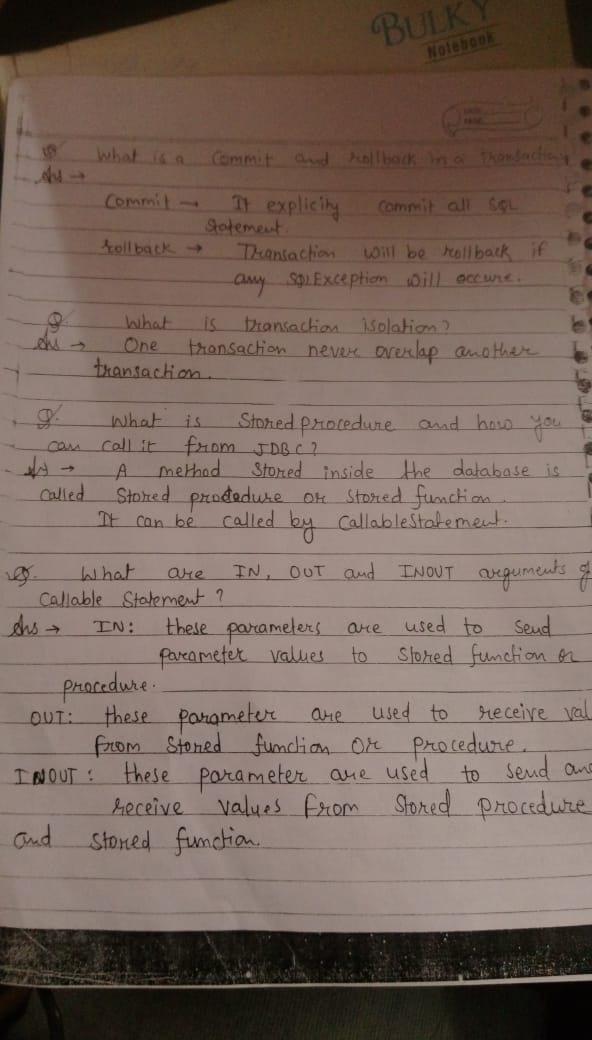 BULKY
Notebook
Q. What is a Commit and rollback in a transaction
Ans →
Commit → It explicity commit all SQL
Statement.
rollback → Transaction will be rollback if
any SQLException will occure.
Q. What is transaction isolation?
Ans → One transaction never overlap another
transaction.
Q. What is Stored procedure and how you
can call it from JDBC?
Ans → A method Stored inside the database is
called Stored procedure or stored function.
It can be called by CallableStatement.
Q. What are IN, OUT and INOUT arguments of
Callable Statement?
Ans → IN: these parameters are used to send
parameter values to Stored function or
procedure.
OUT: these parameter are used to receive val
from Stored function or procedure.
INOUT: these parameter are used to send and
receive values from Stored procedure
and stored function.